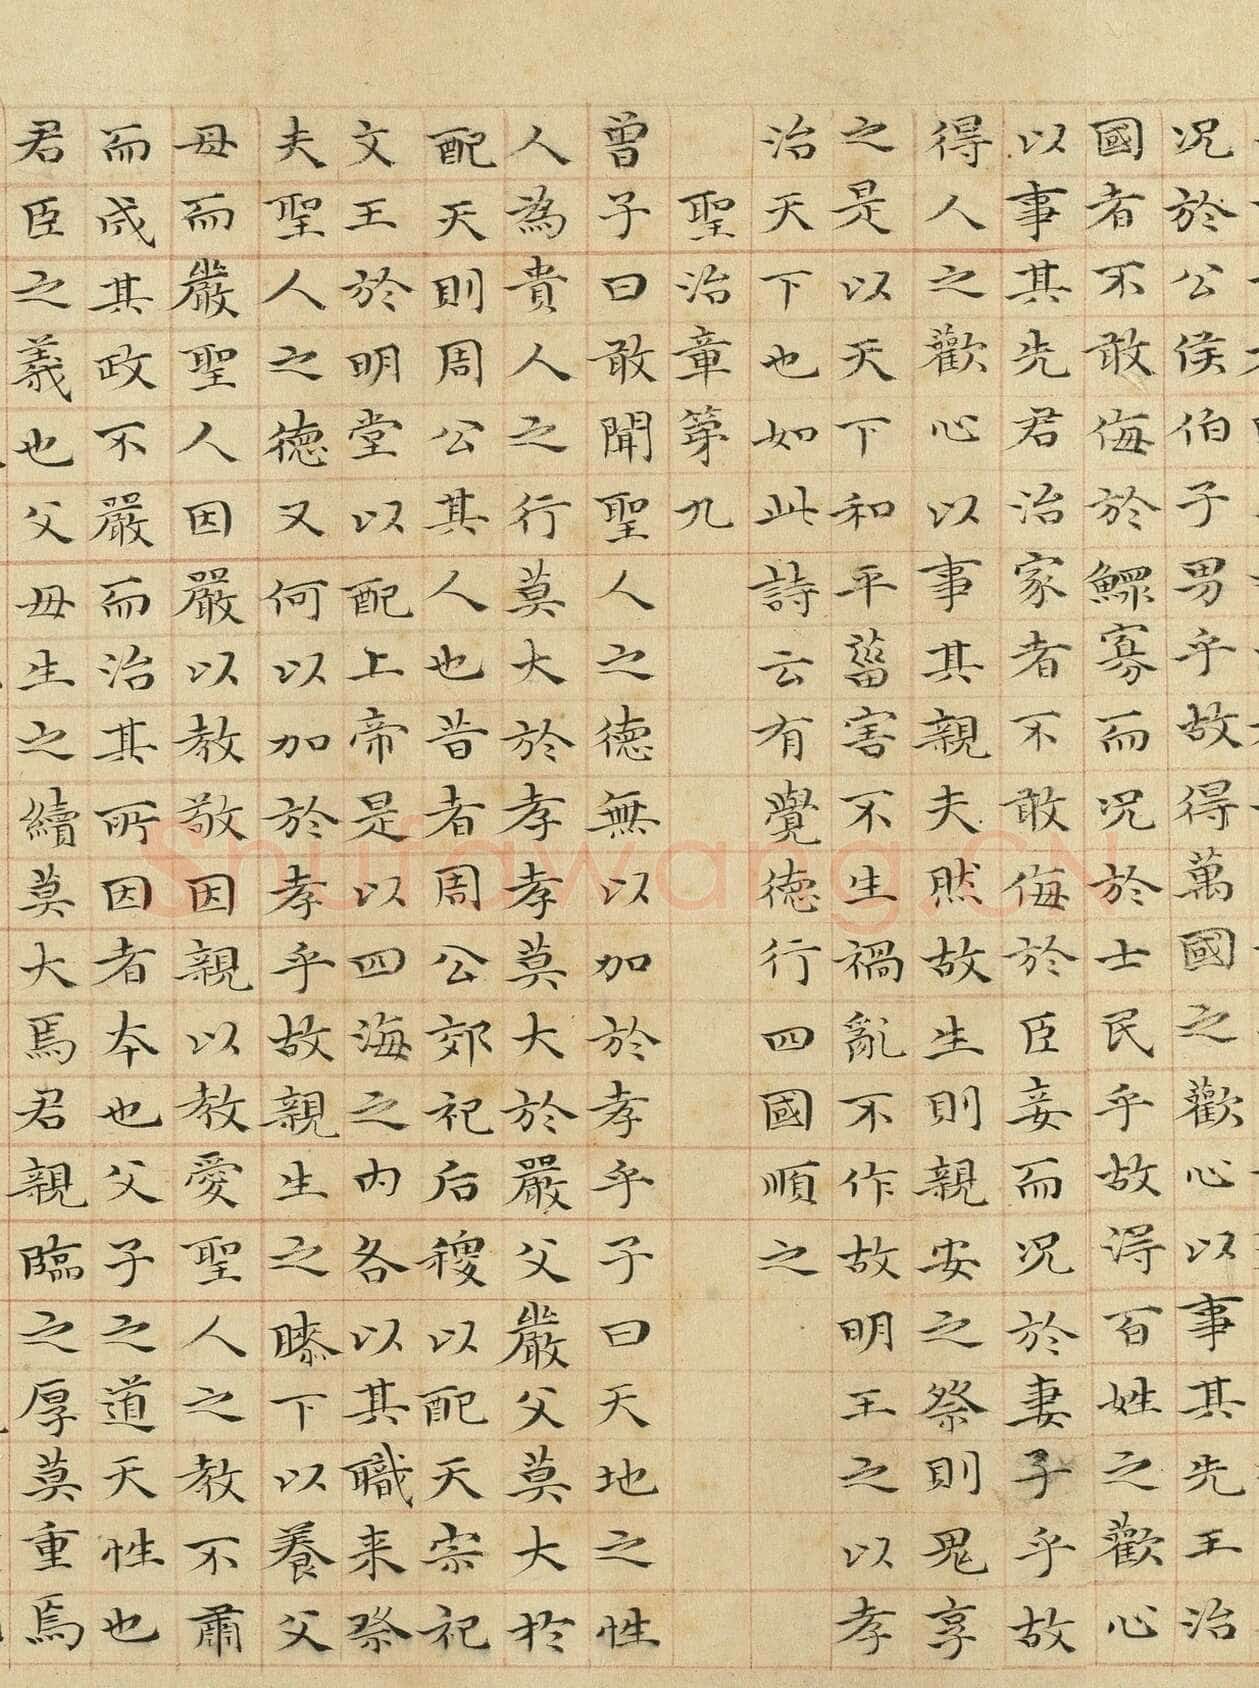 况於公侯伯子男乎故得萬國之歡心以事其先王治
國者不敢侮於鰥寡而况於士民乎故得百姓之歡心
以事其先君治家者不敢侮於臣妾而况於妻子乎故
得人之歡心以事其親夫然故生則親安之祭則鬼享
之是以天下和平菑害不生禍亂不作故明王之以孝
治天下也如此詩云有覺德行四國順之
聖治章第九
曾子曰敢聞聖人之德無以加於孝乎子曰天地之性
人為貴人之行莫大於孝孝莫大於嚴父嚴父莫大於
配天則周公其人也昔者周公郊祀后稷以配天宗祀
文王於明堂以配上帝是以四海之內各以其職来祭
夫聖人之德又何以加於孝乎故親生之膝下以養父
母而嚴聖人因嚴以教敬因親以教愛聖人之教不肅
而成其政不嚴而治其所因者本也父子之道天性也
君臣之義也父母生之續莫大焉君親臨之厚莫重焉
Shufawang.CN